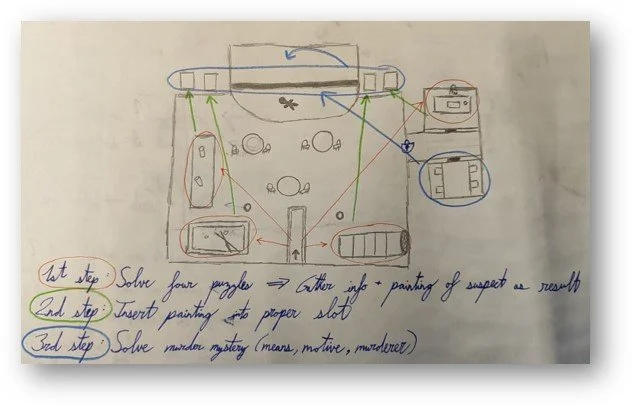 1st step: Solve four puzzles ⇒ Gather info + painting of suspect as result
2nd step: Insert painting into proper slot
3rd step: Solve murder mystery (means, motive, murderer)